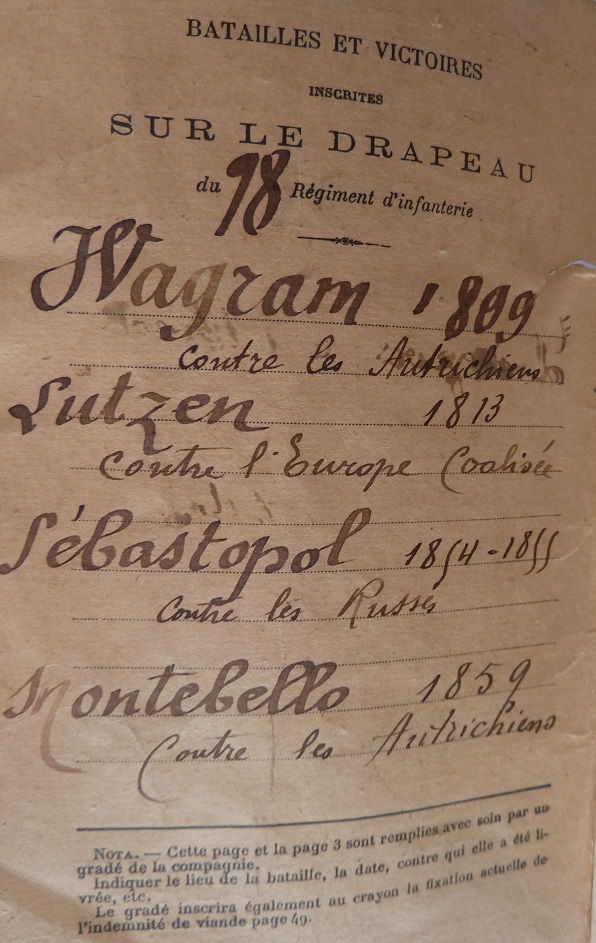 BATAILLES ET VICTOIRES
INSCRITES
SUR LE DRAPEAU
du 98 Régiment d'infanterie
Wagram 1809
contre les Autrichiens
Lutzen 1813
Contre l'Europe Coalisée
Sébastopol 1854-1855
contre les Russes
Montebello 1859
Contre les Autrichiens
NOTA. — Cette page et la page 3 sont remplies avec soin par un
gradé de la compagnie.
Indiquer le lieu de la bataille, la date, contre qui elle a été li-
vrée, etc.
Le gradé inscrira également au crayon la fixation actuelle de
l'indemnité de viande page 49.